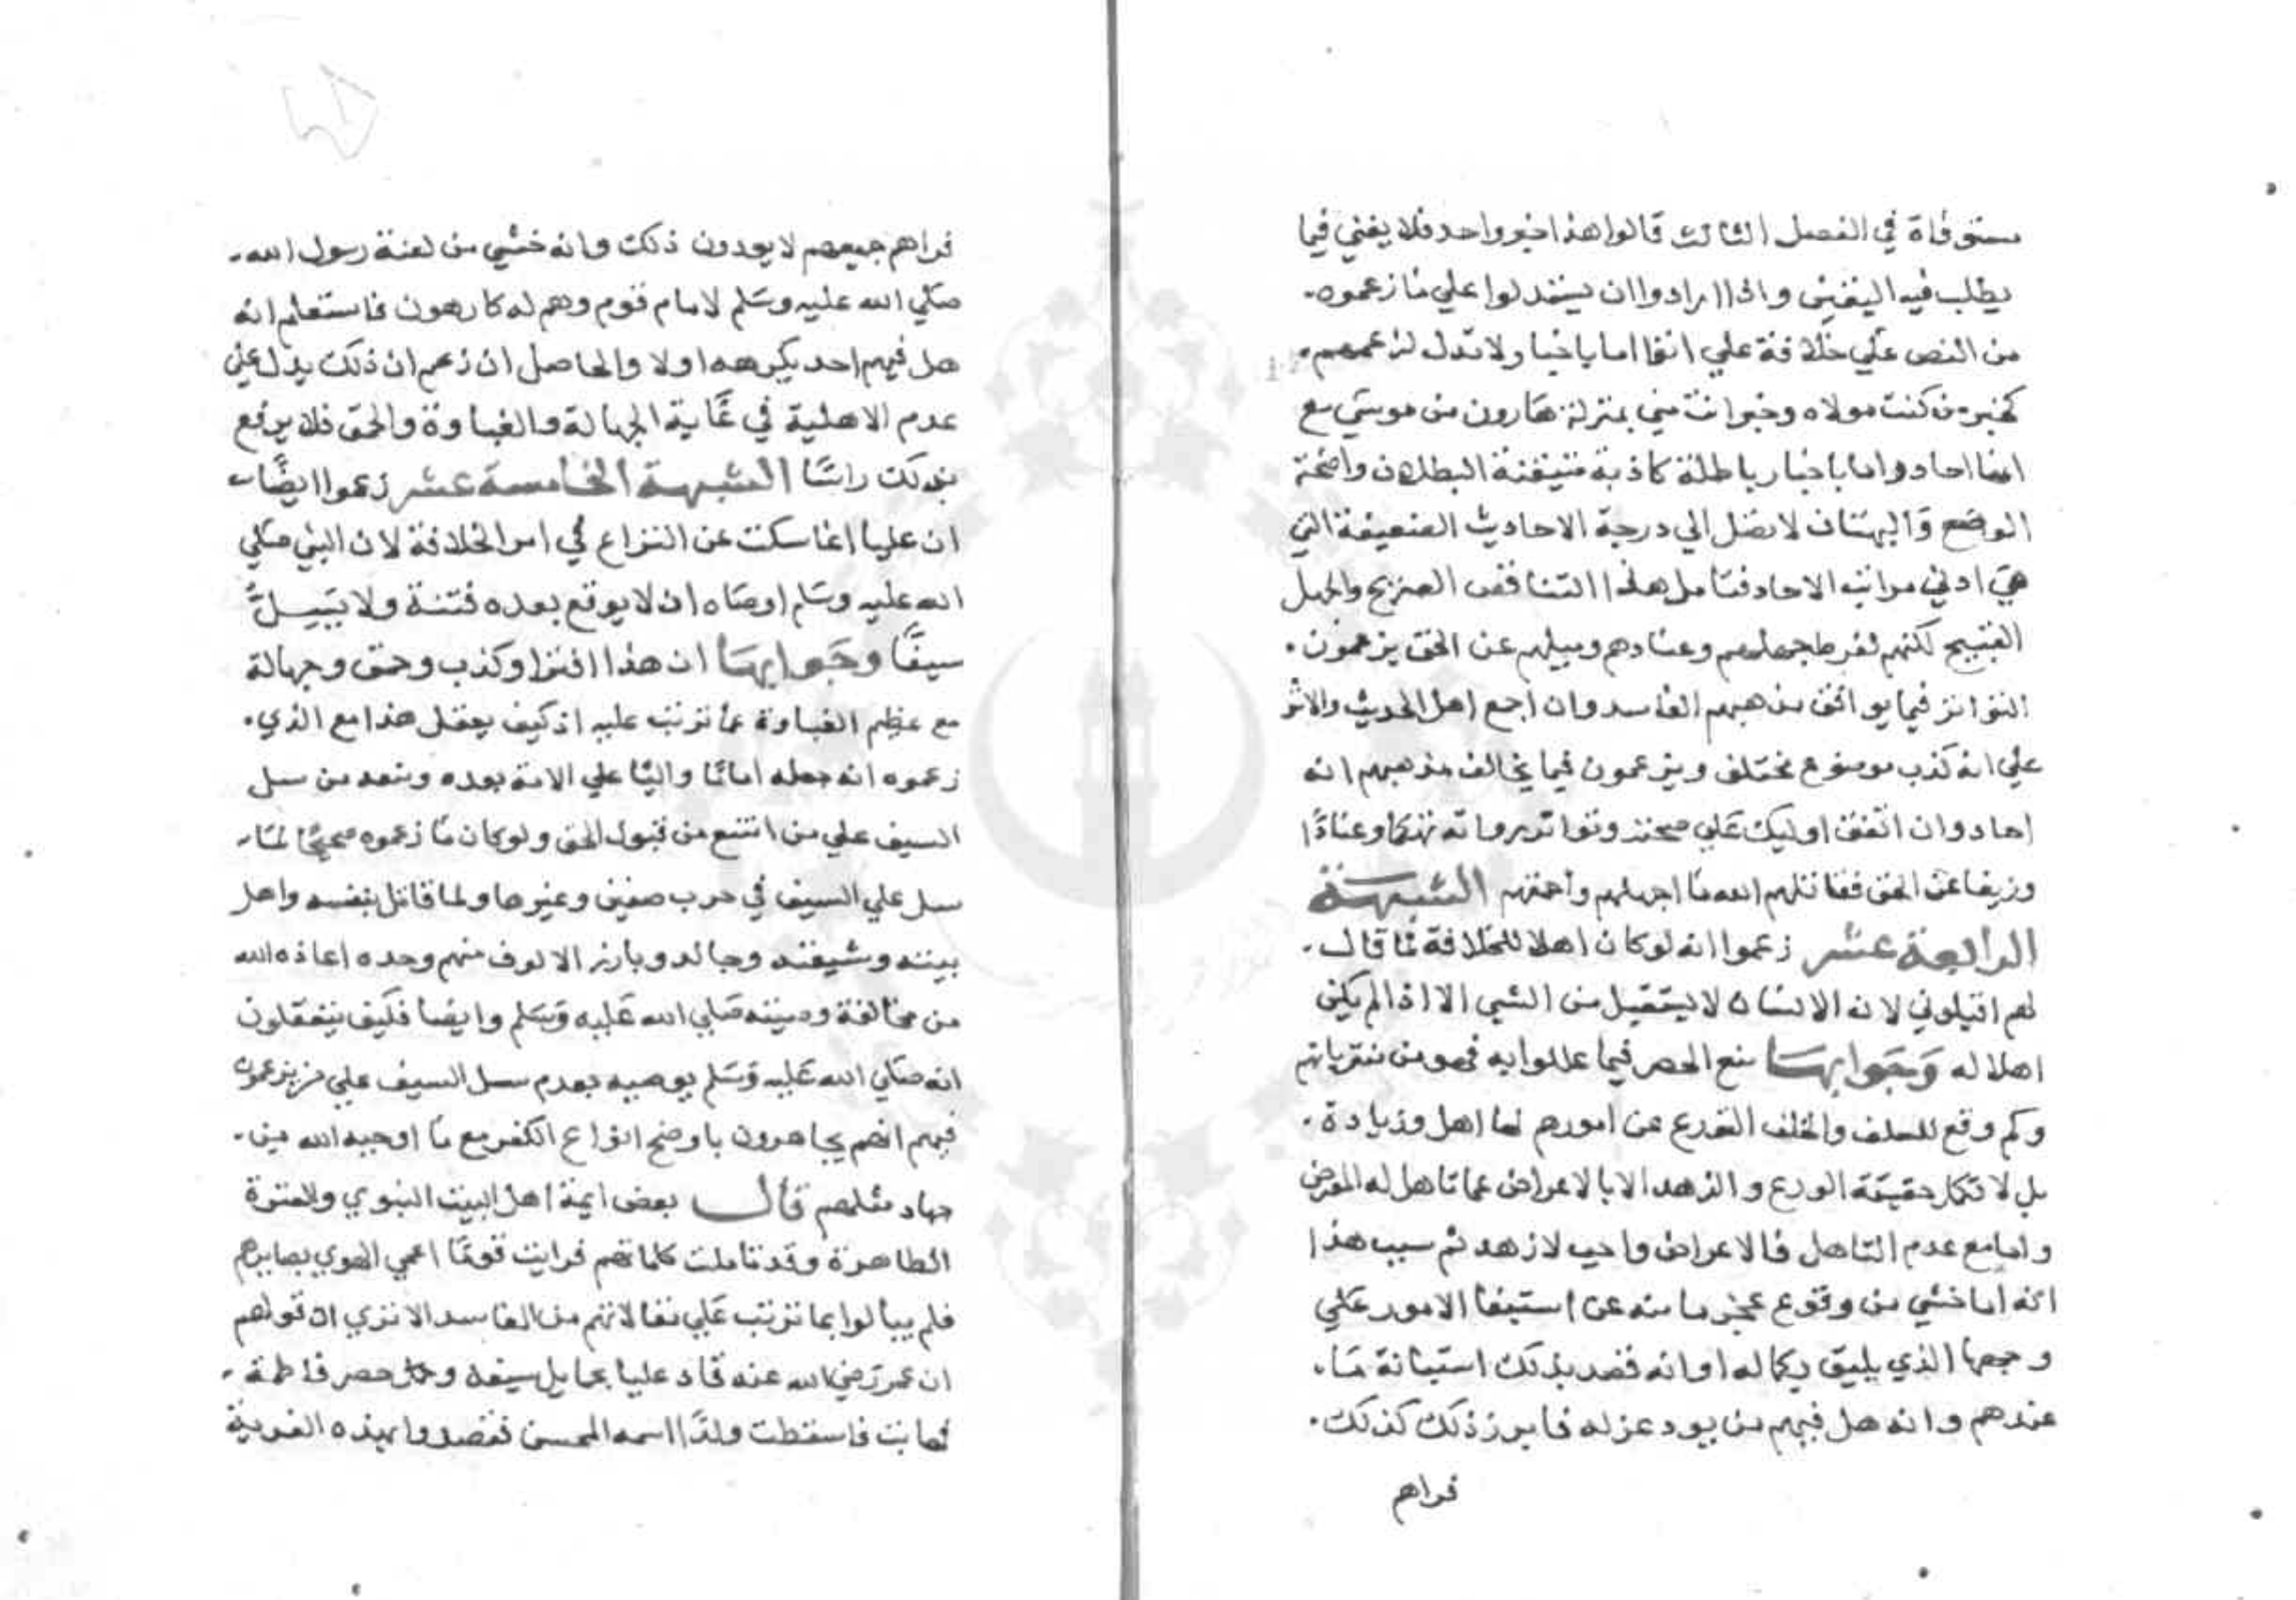 مستوفاة في الفصل الثالث قالوا هذا خبر واحد فلا يغني فيما
يطلب فيه اليقين واذا ارادوا ان يستدلوا علي ما زعموه
من النص علي خلافة علي اتوا اما باخبار لا تدل لزعمهم
كخبر من كنت مولاه وخبر انت مني بمنزلة هارون من موسي مع
انها احاد واما باخبار باطلة كاذبة متيقنة البطلان واضحة
الوضع والبهتان لا تصل الي درجة الاحاديث الضعيفة التي
هي ادني مراتب الاحاد فتامل هذا التناقض الصريح والجهل
القبيح لكنهم لفرط جهلهم وعنادهم وميلهم عن الحق يزعمون
التواتر فيما يوافق مذهبهم الفاسد وان اجمع اهل الحديث والاثر
علي انه كذب موضوع مختلق ويزعمون فيما يخالف مذهبهم انه
احاد وان اتفق اوليك علي صحته وتواتر رواته تحكما وعنادا
وزيغا عن الحق فقاتلهم الله ما اجهلهم واحمقهم الشبهة
الرابعة عشر زعموا انه لو كان اهلا للخلافة لما قال
لهم اقيلوني لان الانسان لا يستقيل من الشي الا اذا لم يكن
اهلا له وجوابها منع الحصر فيما عللوا به فهو من مفترياتهم
وكم وقع للسلف والخلف التورع عن امورهم لها اهل وزيادة
بل لا تكمل حقيقة الورع والزهد الا بالاعراض عما تاهل له المعرض
واما مع عدم التاهل فالاعراض واجب لا زهد ثم سبب هذا
انه اما خشي من وقوع عجز ما منه عن استيفا الامور علي
وجهها الذي يليق بكماله او انه قصد بذلك استبانة ما
عندهم وانه هل فيهم من يود عزله فابرز ذلك كذلك
فراهم
فراهم جميعهم لا يودون ذلك وانه خشي من لعنة رسول الله
صلي الله عليه وسلم لامام قوم وهم له كارهون فاستعلم انه
هل فيهم احد يكرهه او لا والحاصل ان زعم ان ذلك يدل علي
عدم الاهلية في غاية الجهالة والغباوة والحمق فلا يرفع
بذلك راسا الشبهة الخامسة عشر زعموا ايضا
ان عليا انما سكت عن النزاع في امر الخلافة لان النبي صلي
الله عليه وسلم اوصاه ان لا يوقع بعده فتنة ولا يسل
سيفا وجوابها ان هذا افترا وكذب وحمق وجهالة
مع عظيم الغباوة عما ترتب عليه اذ كيف يعقل هذا مع الذي
زعموه انه جعله اماما واليا علي الامة بعده ومنعه من سل
السيف علي من امتنع من قبول الحق ولو كان ما زعموه صحيحا لما
سل علي السيف في حرب صفين وغيرها ولما قاتل بنفسه واهل
بيته وشيعته وجالد وبارز الالوف منهم وحده اعاذه الله
من مخالفة وصيته صلي الله عليه وسلم وايضا فكيف يتعقلون
انه صلي الله عليه وسلم يوصيه بعدم سل السيف علي من يزعمون
فيهم انهم يجاهرون باوضح انواع الكفر مع ما اوجبه الله من
جهاد مثلهم قال بعض ايمة اهل البيت النبوي والعترة
الطاهرة وقد تاملت كلماتهم فرايت قوما اعمي الهوي بصايرهم
فلم يبالوا بما ترتب علي مقالاتهم من المفاسد الا تري ان قولهم
ان عمر رضي الله عنه قاد عليا بحمايل سيفه وحصر فاطمة
فهابت فاسقطت ولدا اسمه المحسن فقصدوا بهذه الفرية